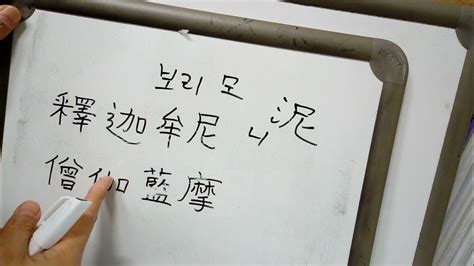 보리 모
釋迦牟尼 니 泥
僧伽藍摩